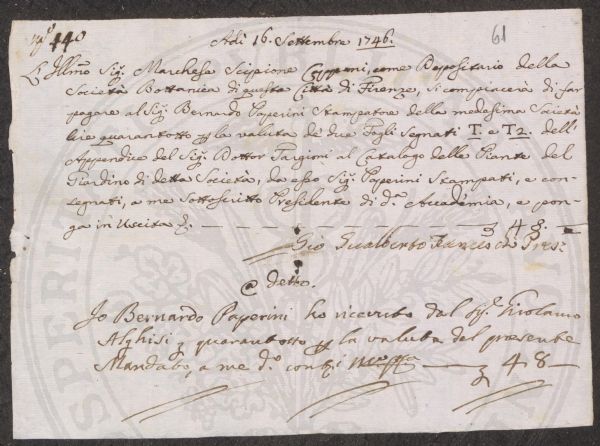 N.º 440
61
Adi 16. Settembre 1746.
L'Illmo Sig. Marchese Scipione Capponi, come Depositario della
Società Bottanica di questa Città di Firenze, si compiacerà di far
pagare al Sig. Bernardo Paperini Stampatore della medesima Società
lire quarantotto p la valuta de due Fogli Segnati T. e T2. dell'
Appendice del Sig. Dottor Targioni al Catalogo delle Piante del
Giardino di detta Società, da esso Sig. Paperini Stampati, e con-
segnati, a me Sottoscritto Presidente di d.ª Accademia, e pon-
ga in Uscita £. 48.
Gio Gualberto Presi.
@ detto.
Io Bernardo Paperini ho ricevuto dal Sig. Girolamo
Alghisi £ quarantotto p la valuta del presente
Mandato, a me d.º conti £ 48